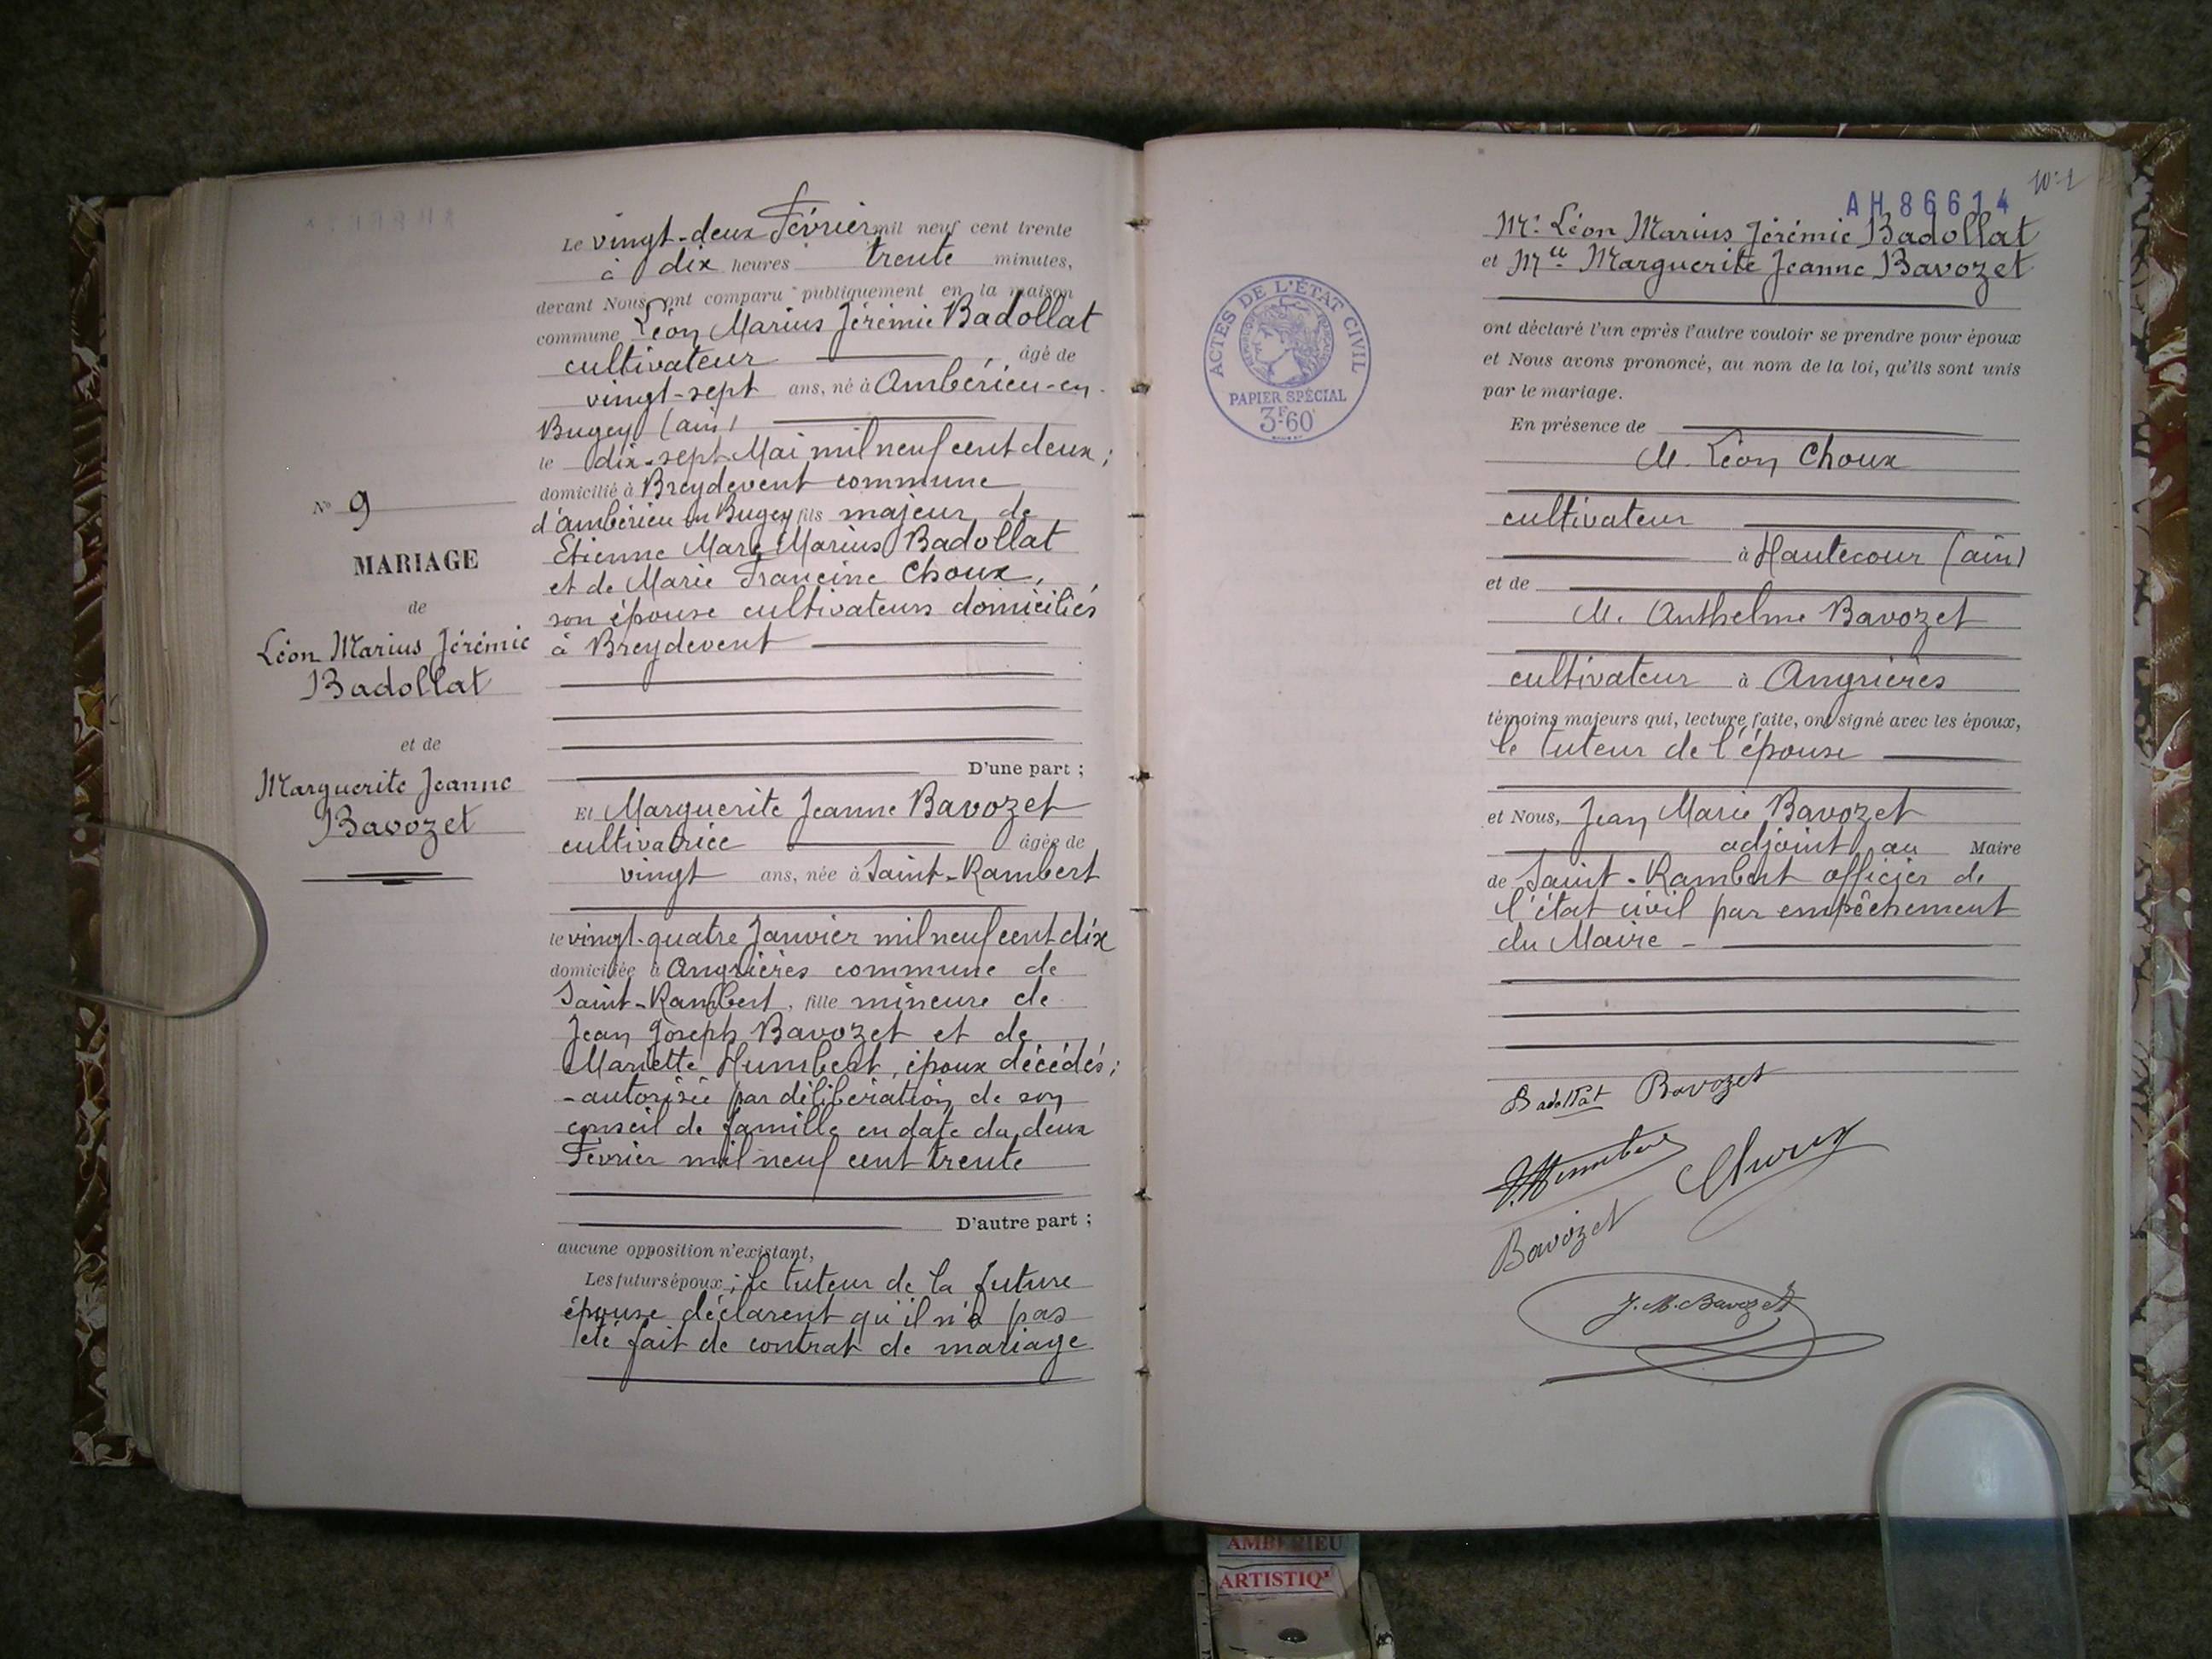 N° 9
MARIAGE
de
Léon Marius Jérémie
Badollat
et de
Marguerite Jeanne
Bavozet
Le vingt-deux Février mil neuf cent trente
à dix heures trente minutes,
devant Nous ont comparu publiquement en la maison
commune Léon Marius Jérémie Badollat
cultivateur âgé de
vingt-sept ans, né à Ambérieu-en-
Bugey (ain)
le dix-sept Mai mil neuf cent deux ;
domicilié à Breydevent commune
d'ambérieu en Bugey fils majeur de
Etienne Marc Marius Badollat
et de Marie Francine Choux,
son épouse cultivateurs domiciliés
à Breydevent
D'une part ;
Et Marguerite Jeanne Bavozet
cultivatrice âgée de
vingt ans, née à Saint-Rambert
le vingt-quatre Janvier mil neuf cent dix
domiciliée à Angrières commune de
Saint-Rambert, fille mineure de
Jean Joseph Bavozet et de
Mariette Humbert, époux décédés ;
-autorisée par délibération de son
conseil de famille en date du deux
Février mil neuf cent trente
D'autre part ;
aucune opposition n'existant,
Les futurs époux ; le tuteur de la future
épouse déclarent qu'il n'a pas
été fait de contrat de mariage
AH 86614
ACTES DE L'ÉTAT CIVIL
PAPIER SPÉCIAL
3F60
Mr Léon Marius Jérémie Badollat
et Mlle Marguerite Jeanne Bavozet
ont déclaré l'un après l'autre vouloir se prendre pour époux
et Nous avons prononcé, au nom de la loi, qu'ils sont unis
par le mariage.
En présence de
M. Léon Choux
cultivateur
à Hautecour (ain)
et de
M. Anthelme Bavozet
cultivateur à Angrières
témoins majeurs qui, lecture faite, ont signé avec les époux,
le tuteur de l'épouse
et Nous, Jean Marie Bavozet
adjoint au Maire
de Saint-Rambert officier de
l'état civil par empêchement
du Maire -
Badollat Bavozet
Choux
Bavozet
J. M. Bavozet
AMBERIEU
ARTISTIQ